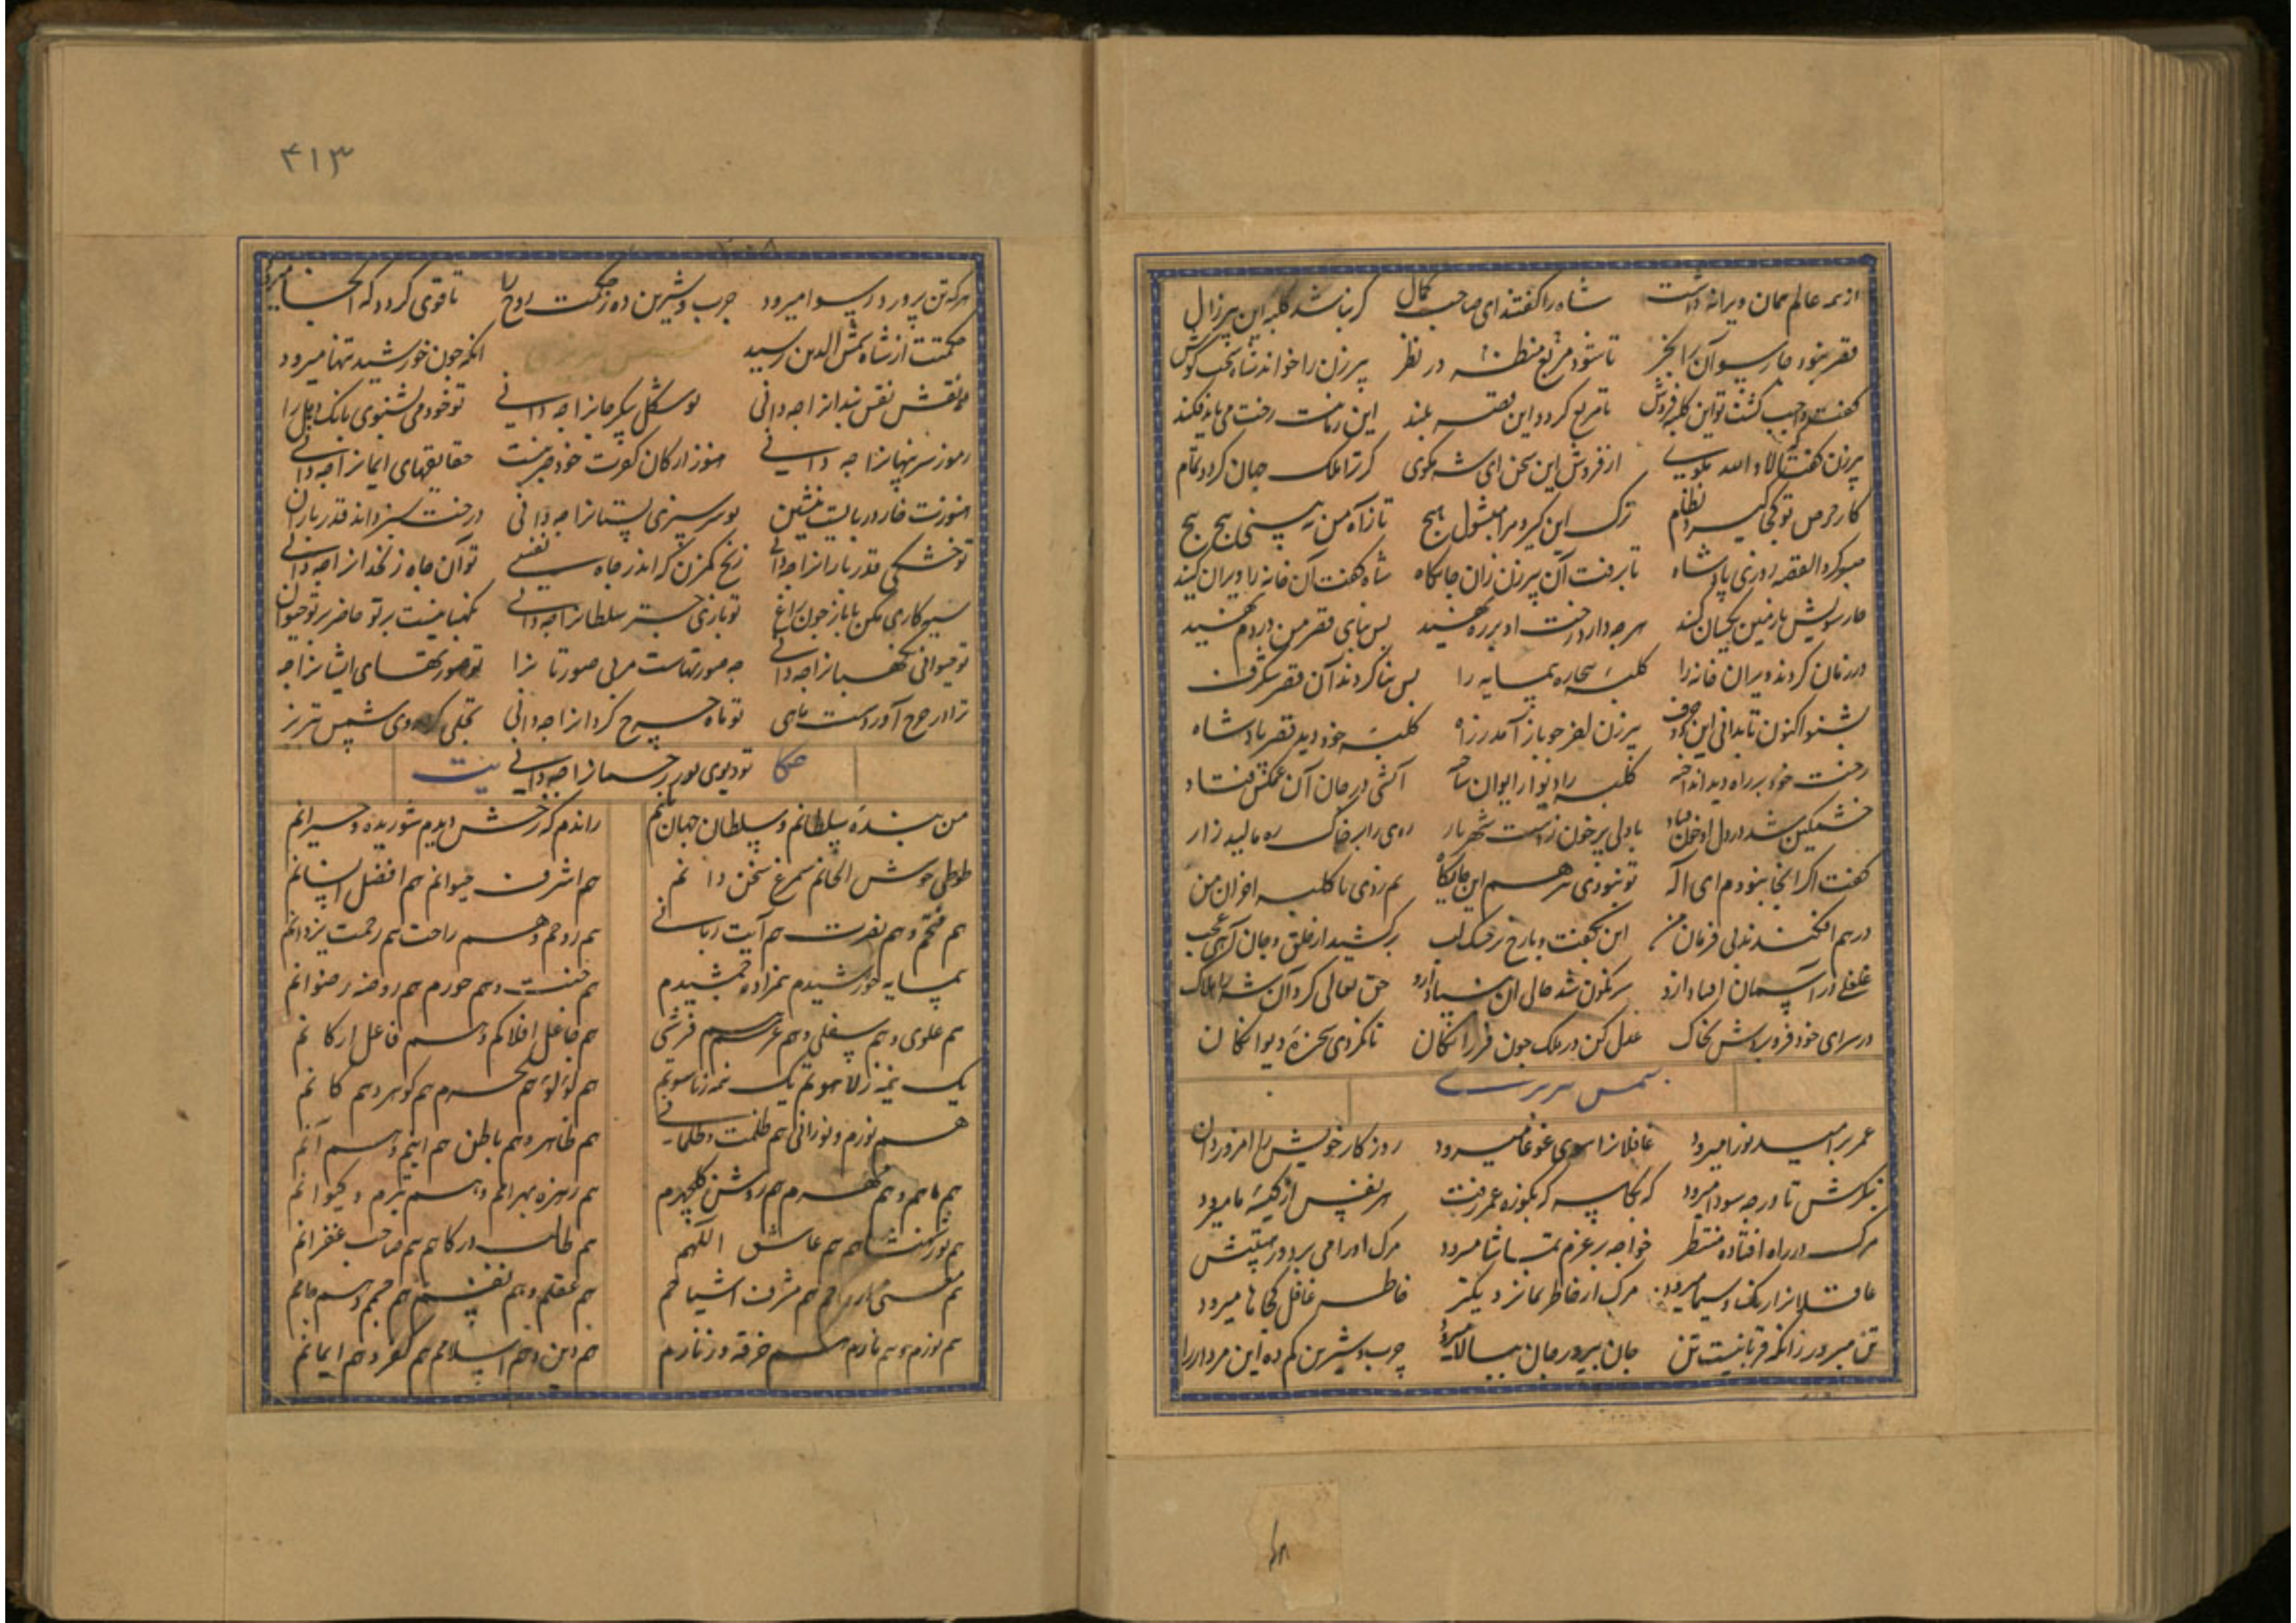 از همه عالم همان ویرانه داشت شاه را گفتند ای صاحب کمال گر نباشد کلبه این پیرزال
قصر نبود چارسو آن را بخر تا شود مربع منظره در نظر پیرزن را خواند شاه
گفت واجب گشت تو این کلبه فروش تا مربع گردد این قصر بلند این زمانت رخت می باید فکند
پیرزن گفتا که لا والله مگوی از فروش این سخن ای شه مگوی گر ترا ملک جهان گردد تمام
کار حرص تو کی گیرد نظام ترک این گیر و مرا مشول هیچ تا ز آه من نه بینی پیچ پیچ
صبر کرد القصه روزی پادشاه تا برفت آن پیرزن زان جایگاه شاه گفت آن خانه را ویران کنید
چارسویش با زمین یکسان کنید هرچه دارد رخت او بر ره نهید پس بنای قصر من در دم نهید
در زمان کردند ویران خانه را کلبه بیچاره همسایه را پس بنا کردند آن قصر شگرف
بشنو اکنون تا بدانی این دو حرف پیرزن القصه چو باز آمد ز راه کلبه خود دید قصر پادشاه
رخت خود بر راه دید انداخته کلبه را دیوار ایوان ساخته آتشی در جان آن غمگین فتاد
خشمگین شد در دل او خون فتاد با دلی پرخون ز دست شهریار روی را بر خاک ره مالید زار
گفت اگر اینجا نبودم ای اله تو نبودی نیز هم این جایگاه کلبه احزان من
درهم افکندند بی فرمان من این بگفت و با رخ تر خشک لب برکشید از حلق و جان آهی عجب
غلغلی در آسمان افتاد ازو سرنگون شد حالی آن بنیاد ازو حق تعالی کرد آن شه را هلاک
در سرای خود فرو بردش بخاک عدل کن در ملک چون فرزانگان تا نگردی سخره دیوانگان
شمس تبریزی
عمر بر امید فردا میرود غافلانرا سوی غوغا میرود روزگار خویش را امروز دان
بنگرش تا در چه سودا میرود که بکاسه که بکوزه عمر رفت هر نفس از کیسه ما میرود
مرگ در راه افتاده منتظر خواجه بر عزم تماشا میرود مرگ او را می برد در پیش
عاقلانرا رنگ و سیما میرود مرگ از خاطر بما نزدیکتر خاطر غافل کجاها میرود
تن مپرور زانکه قربانیست تن جان بپرور جان ببالا میرود چرب و شیرین کم ده این مردار را
۴۱۳
هر که تن پرورد رسوا میرود چرب و شیرین ده ز حکمت روح را تا قوی گردد که آنجا میرود
حکمتت از شاه شمس الدین رسید آنکه چون خورشید تنها میرود
شمس تبریزی
نقش نقش بندانرا چه دانی تو شکل پیکر جانرا چه دانی تو خود می نشنوی بانک دهل را
رموز سر پنهانرا چه دانی هنوز از کان کفرت خود خبر نیست حقایقهای ایمانرا چه دانی
هنوزت خار در پایست بنشین تو سرسبزی بستانرا چه دانی درخت سبز داند قدر باران
تو خشکی قدر بارانرا چه دانی زنخ کم زن که اندر چاه نفسی تو آن چاه زنخدانرا چه دانی
سیه کاری مکن با باز چون زاغ تو بازی چتر سلطانرا چه دانی نگهبانیست بر تو حاضر بر تو حیوان
تو حیوانی نگهبانرا چه دانی چه صورتهاست مر بی صورتانرا تو صورتهای ایشانرا چه
ترا در چرخ آوردست ماهی تو ماه چرخ گردانرا چه دانی تجلی کرد روی شمس تبریز
تو دیوی نور رحمانرا چه دانی
من بنده سلطانم و سلطان جهان بانم راندم که رخش دیدم شوریده و حیرانم
طوطی خوش الحانم سیمرغ سخن دانم هم اشرف حیوانم هم افضل انسانم
هم فتحم و هم نصرت هم آیت ربانی هم روحم و هم راحت هم رحمت یزدانم
همسایه خورشیدم همزاده جمشیدم هم جنت و هم حورم هم روضه رضوانم
هم علوی و هم سفلی و هم عرشم و هم فرشی هم فاعل افلاکم و هم فاعل ارکانم
یک نیمه ز لاهوتم یک نیمه ز ناسوتم هم لؤلؤ هم بحرم هم گوهر و هم کانم
هم نورم و نورانی هم ظلمت و ظلمانی هم ظاهر و هم باطن هم اینم و هم آنم
هم ماهم و هم مهرم هم روشن گلچهرم هم زهره بهرامم و هم تیرم و کیوانم
هم نور هم عاشق اللهم هم طالب درگاهم هم صاحب غفرانم
هم هم مشرف اشیاحم هم عقلم و هم نفسم هم جسم و هم جانم
هم نورم و هم نارم هم خرقه و زنارم هم دین و هم اسلامم هم کفر و هم ایمانم